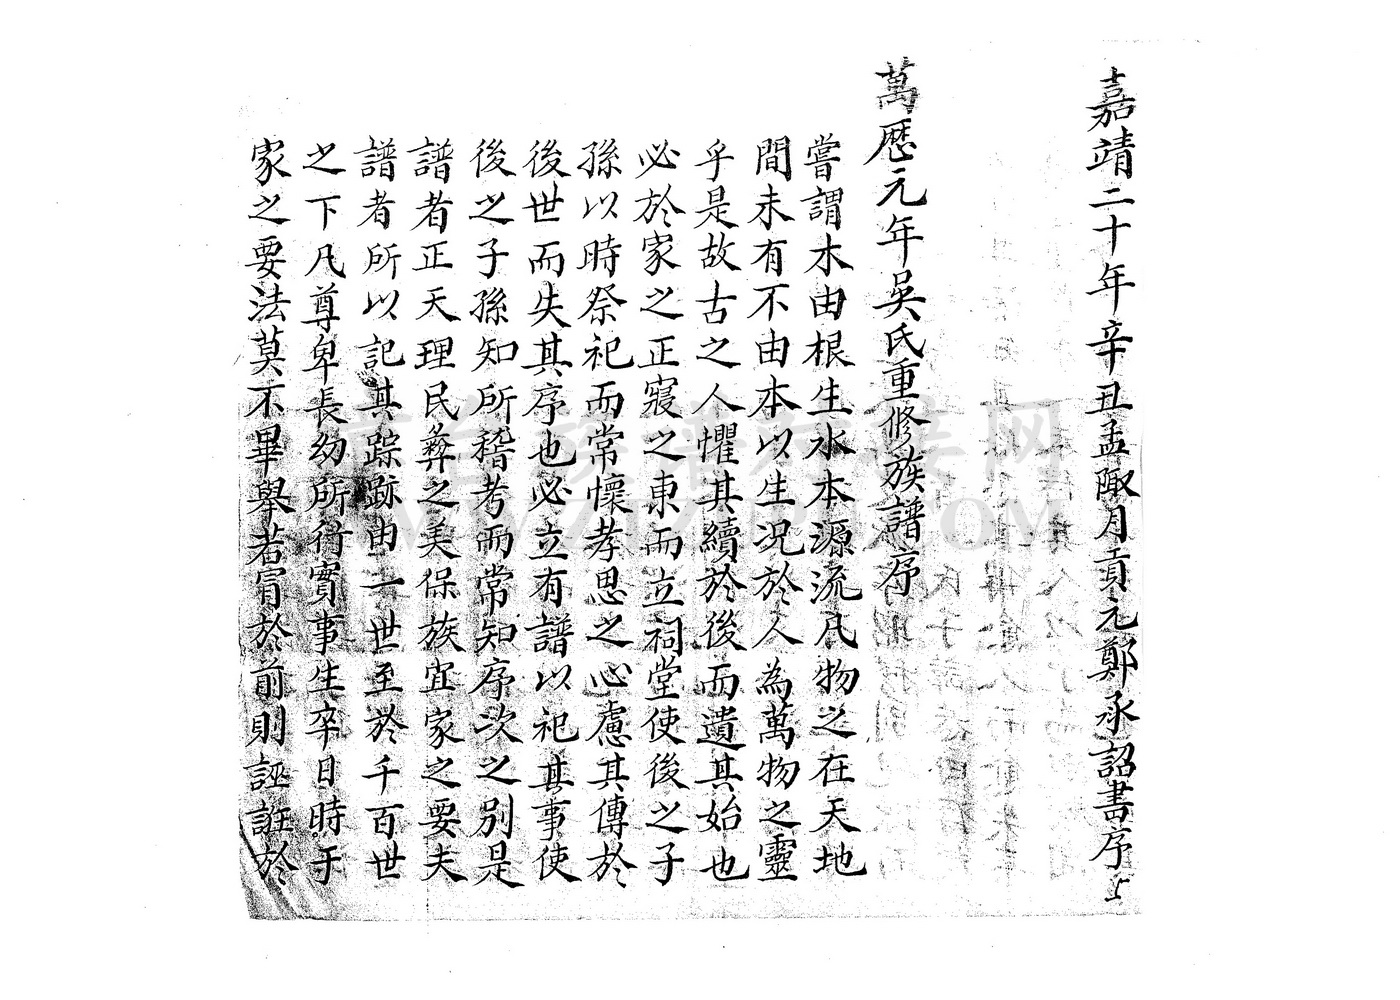 嘉靖二十年辛丑孟陬月貢元鄭承詔書序
萬歷元年吳氏重修族譜序
嘗謂木由根生水本源流凡物之在天地
間未有不由本以生况於人為萬物之靈
乎是故古之人懼其續於後而遺其始也
必於家之正寢之東而立祠堂使後之子
孫以時祭祀而常懷孝思之心慮其傳於
後世而失其序也必立有譜以祀其事使
後之子孫知所稽考而常知序次之别是
譜者正天理民彝之美保族宜家之要夫
譜者所以記其踪跡由一世至於千百世
之下凡尊卑長幼所行實事生卒日時于
家之要法莫不畢舉若冐於前則誣誑於